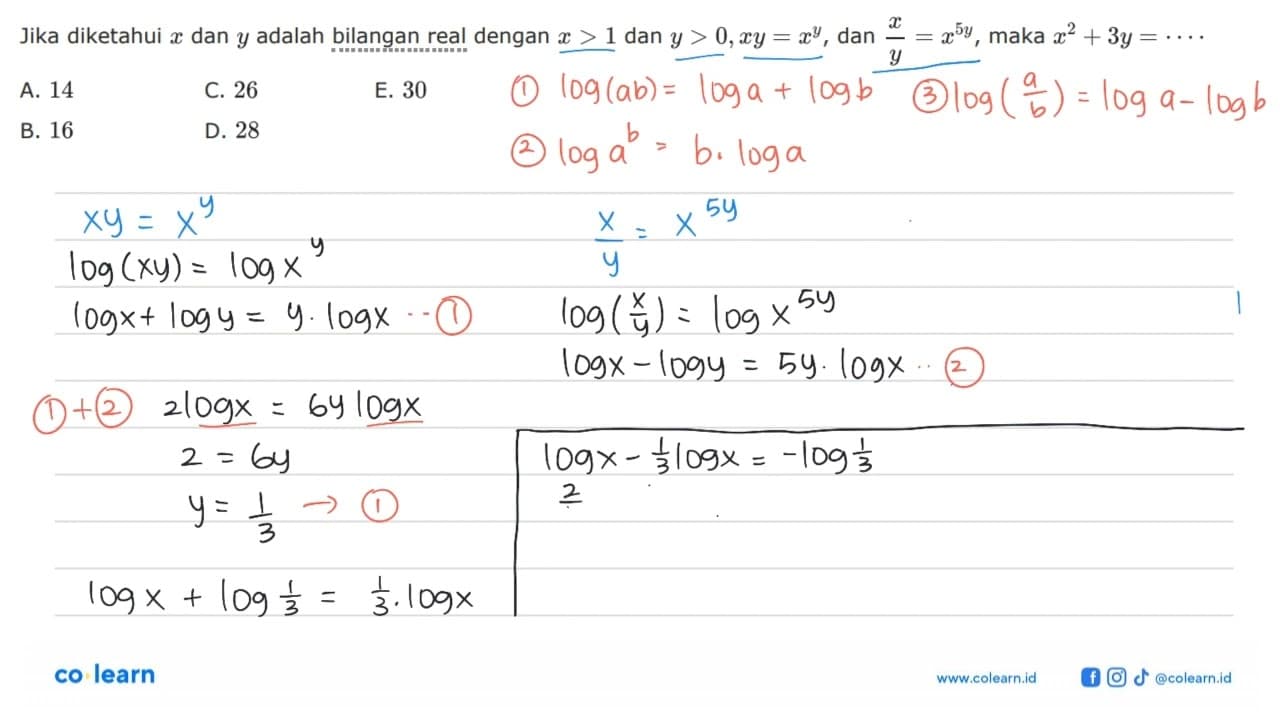 Jika diketahui x dan y adalah bilangan real dengan x > 1 dan y > 0, xy = x^y, dan x/y = x^{5y}, maka x² + 3y = ····
A. 14 C. 26 E. 30
B. 16 D. 28
① log(ab) = log a + log b ③ log(a/b) = log a - log b
② log a^b = b. log a
xy = x^y
x/y = x^{5y}
log(xy) = log x^y
logx + log y = y. logx ··· ①
log(x/y) = log x^{5y}
logx - logy = 5y. logx ·· ②
① + ② 2logx = 6y logx
2 = 6y
y = 1/3 → ①
log x + log 1/3 = 1/3. logx
logx - 1/3 logx = -log 1/3
2
co learn
www.colearn.id
@colearn.id